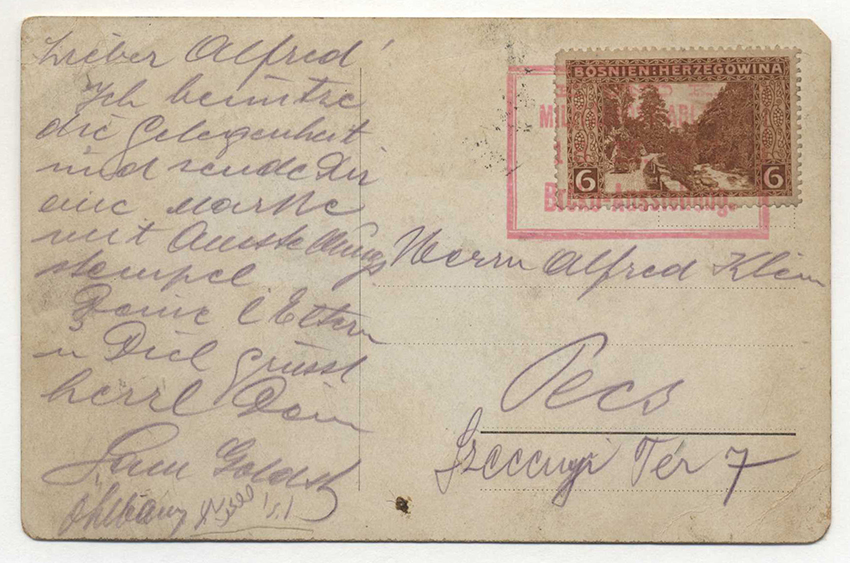 Lieber Alfred!
Ich benütze
die Gelegenheit
und sende Dir
eine Marke
mit Ausstellungs
stempel
Deine l. Eltern
u Dich grüsst
herzl Dein
Goldst
BOSNIEN:HERZEGOWINA
6 6
MIL
Ausstellung.
Herrn Alfred Klein
Pecs
Szecenyi Ter 7